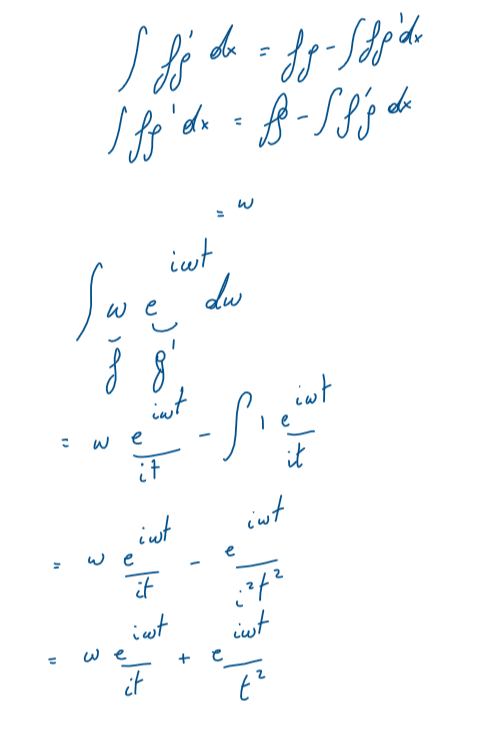 ∫ f'g dx = fg - ∫ fg' dx
∫ fg' dx = fg - ∫ f'g dx
= w
∫ w e^{iwt} dw
f g'
= w e^{iwt}/it - ∫ 1 e^{iwt}/it
= w e^{iwt}/it - e^{iwt}/i²t²
= w e^{iwt}/it + e^{iwt}/t²